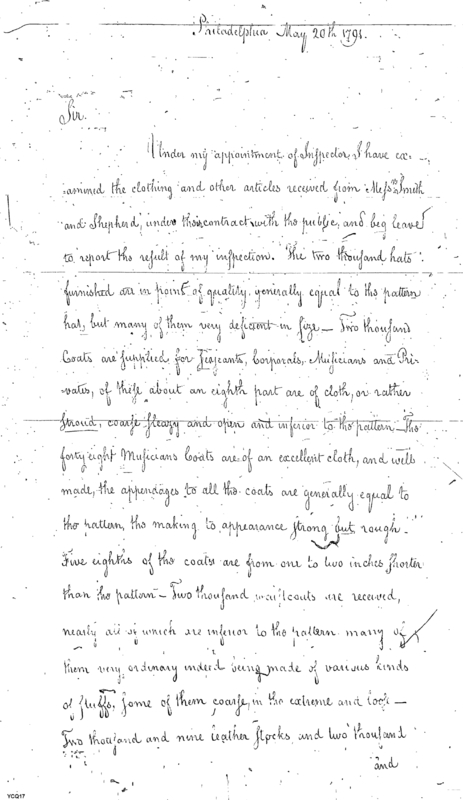 Philadelphia May 20th 1791.
Sir.
Under my appointment of Inspector, I have ex-
amined the clothing and other articles received from Messrs Smith
and Shepherd, under their contract with the public, and beg leave
to report the result of my inspection. The two thousand hats
furnished are in point of quality generally equal to the pattern
hat, but many of them very deficient in size — Two thousand
Coats are supplied for Serjeants, Corporals, Musicians and Pri-
vates, of these about an eighth part are of cloth, or rather
stroud, coarse sleazy and open and inferior to the pattern — The
forty eight Musicians Coats are of an excellent cloth, and well
made, the appendages to all the coats are generally equal to
the pattern, the making to appearance strong but rough.
Five eighths of the coats are from one to two inches shorter
than the pattern — Two thousand waistcoats are received,
nearly all of which are inferior to the pattern many of
them very ordinary indeed being made of various kinds
of stuffs, some of them coarse, in the extreme and loose —
Two thousand and nine leather stocks and two thousand
and
YCQ17